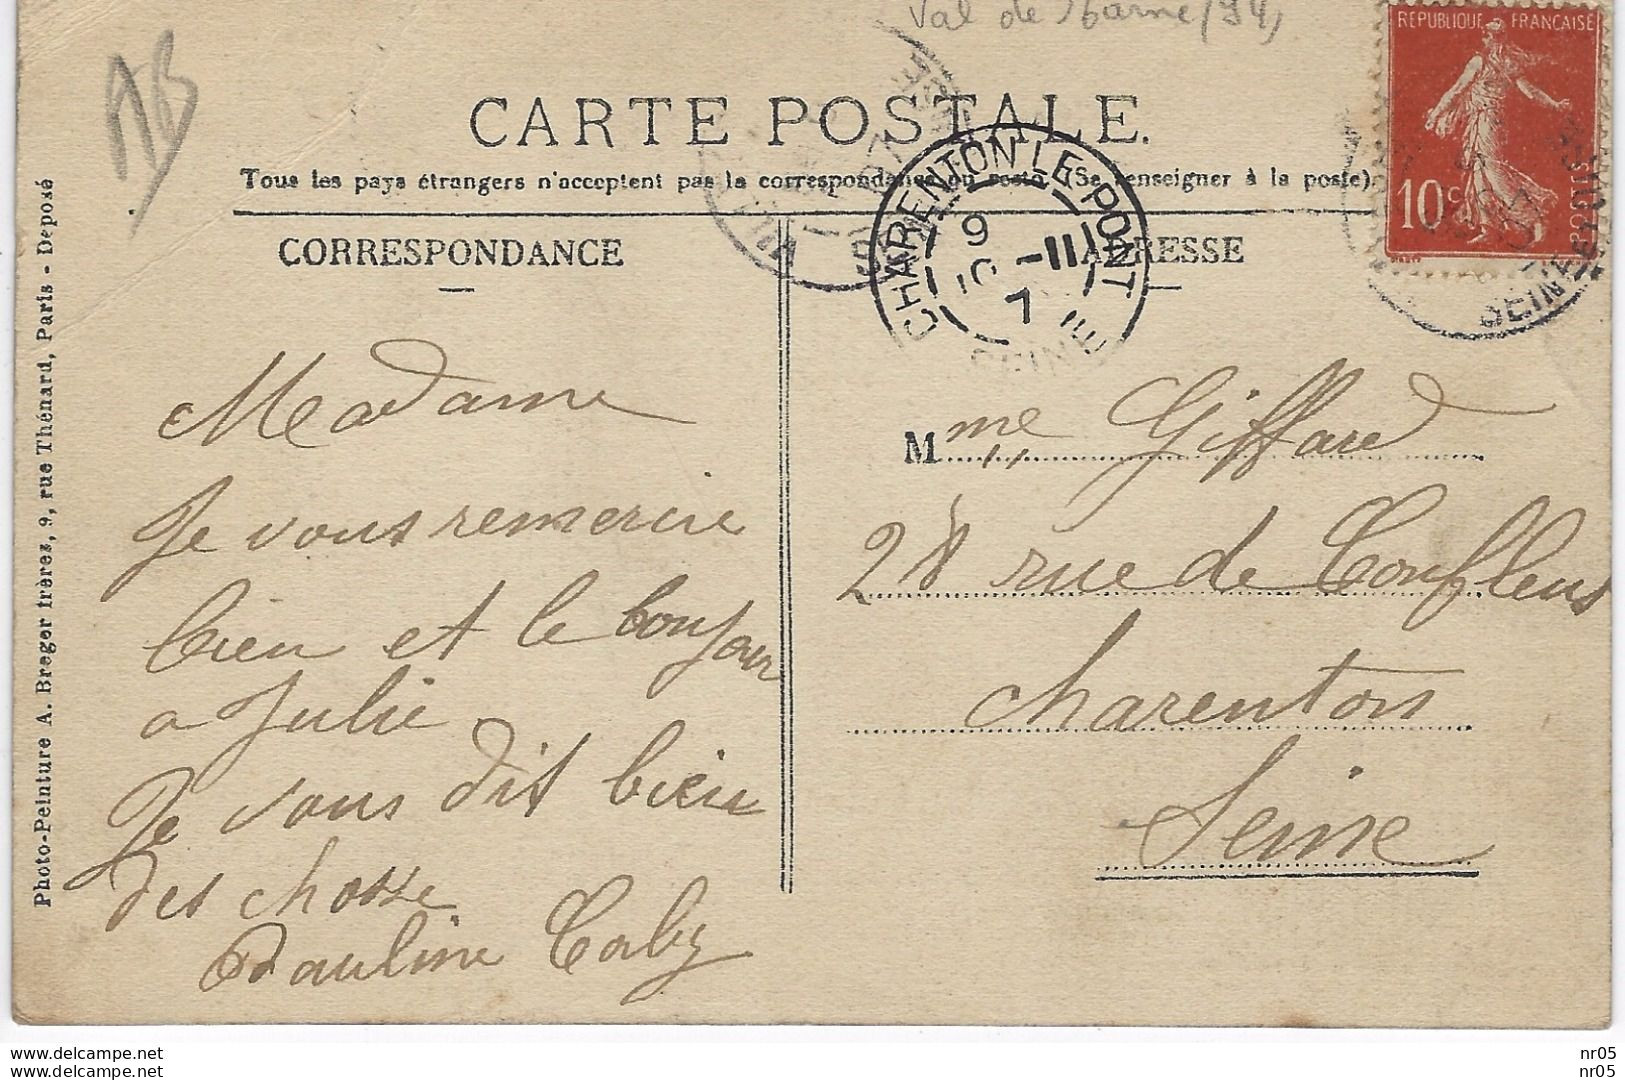 Val de Marne (94)
AB
REPUBLIQUE FRANCAISE
10c
CARTE POSTALE.
Tous les pays étrangers n'acceptent pas la correspondance au recto. (Se renseigner à la poste).
CHARENTON LE PONT
9
10 -11
7
SEINE
SEINE
CORRESPONDANCE
ADRESSE
Madame
Je vous remercie
bien et le bonjour
a Julie
Je vous dit bien
des chosse
Pauline Caby
Mme Giffard
28 rue de Conflens
Charenton
Seine
Photo-Peinture A. Breger frères, 9, rue Thénard, Paris - Déposé
delcampe.net
delcampe.net
nr05
nr05